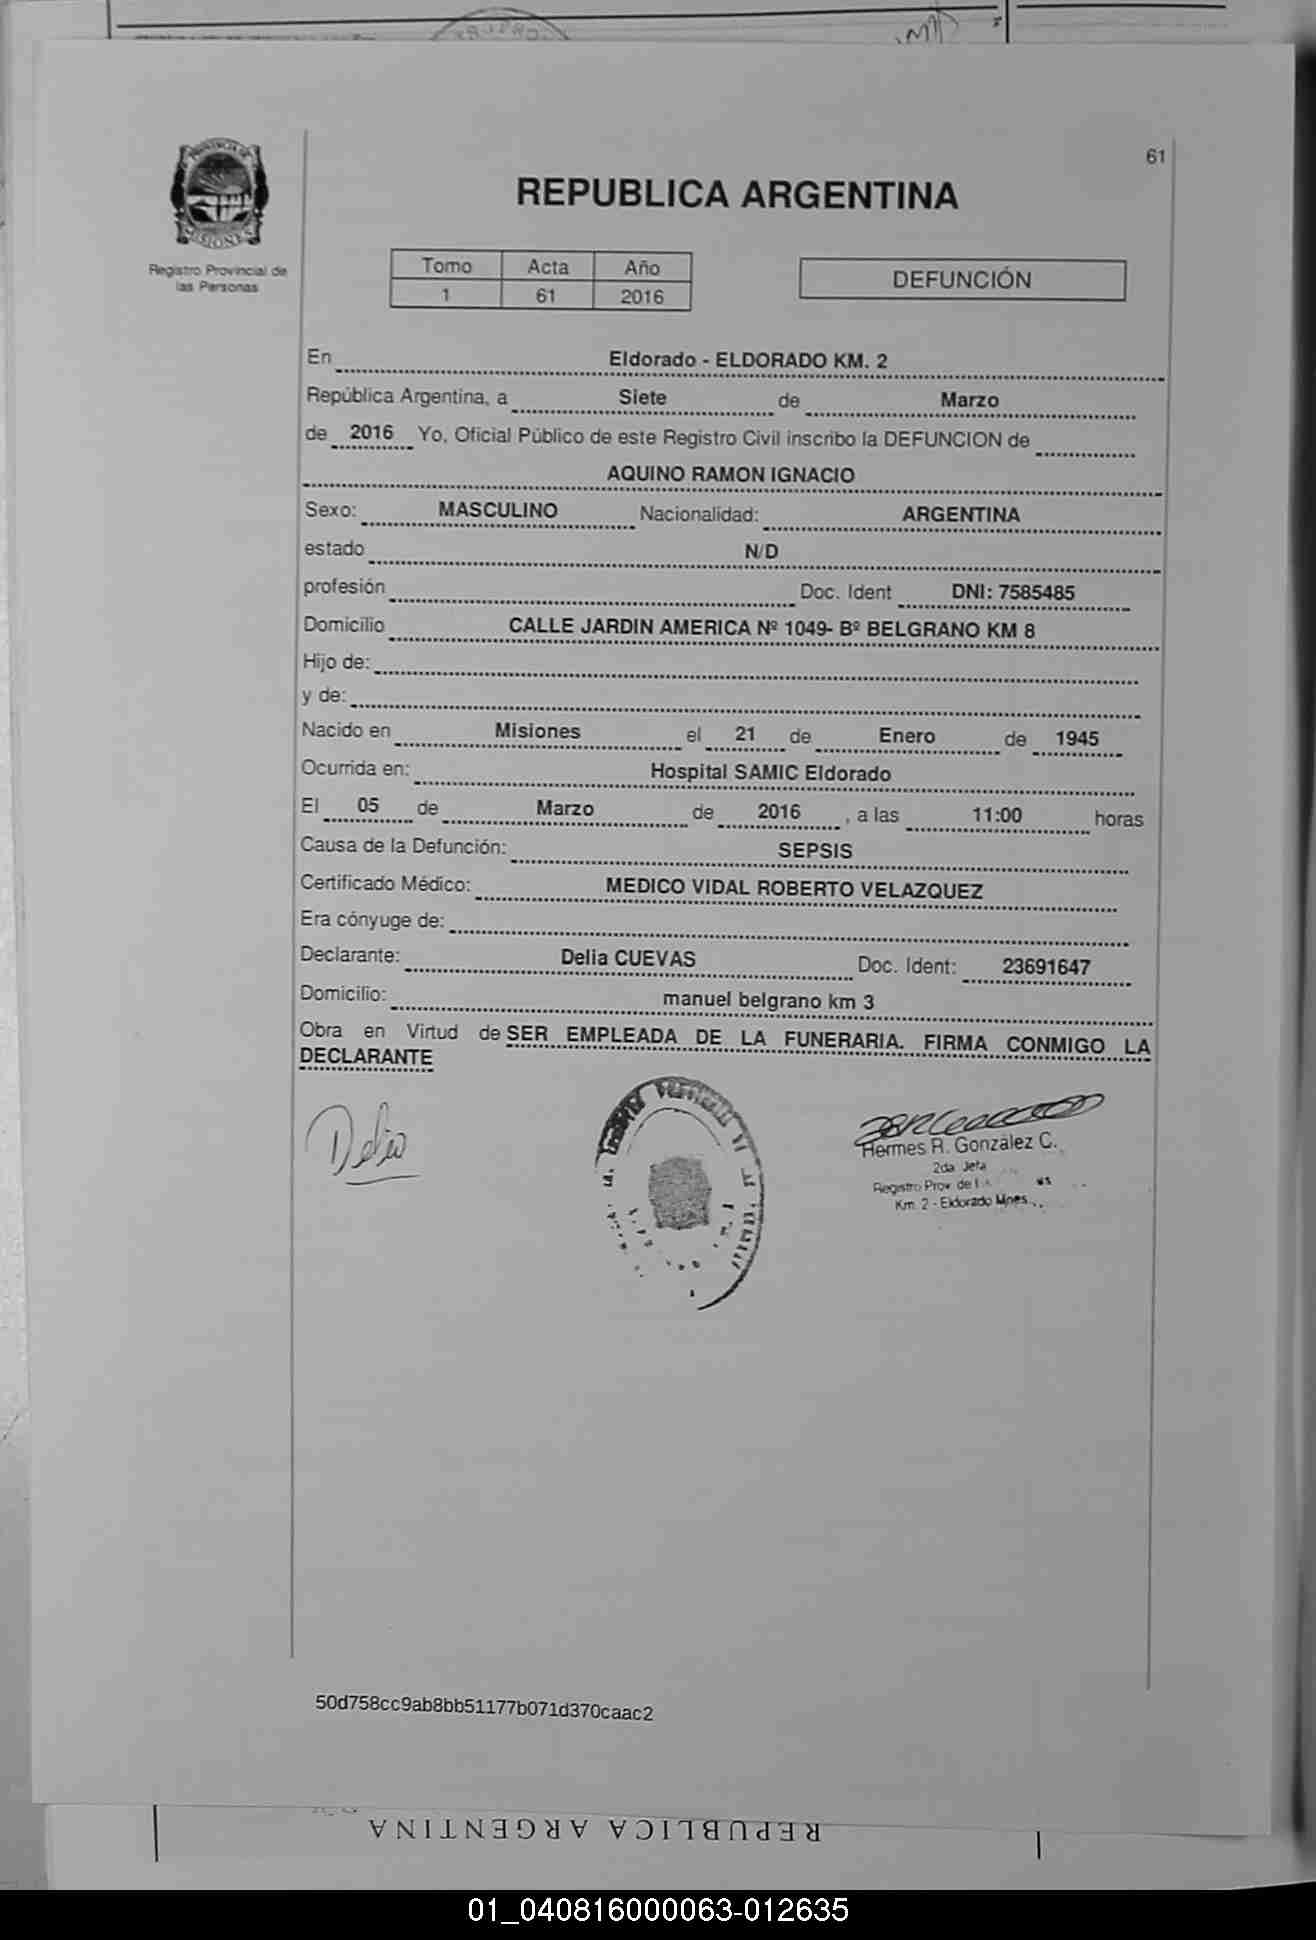 61
PROVINCIA DE
MISIONES
Registro Provincial de
las Personas
REPUBLICA ARGENTINA
Tomo Acta Año
1 61 2016
DEFUNCIÓN
En Eldorado - ELDORADO KM. 2
República Argentina, a Siete de Marzo
de 2016 Yo, Oficial Público de este Registro Civil inscribo la DEFUNCION de
AQUINO RAMON IGNACIO
Sexo: MASCULINO Nacionalidad: ARGENTINA
estado N/D
profesión Doc. Ident DNI: 7585485
Domicilio CALLE JARDIN AMERICA Nº 1049- Bº BELGRANO KM 8
Hijo de:
y de:
Nacido en Misiones el 21 de Enero de 1945
Ocurrida en: Hospital SAMIC Eldorado
El 05 de Marzo de 2016 , a las 11:00 horas
Causa de la Defunción: SEPSIS
Certificado Médico: MEDICO VIDAL ROBERTO VELAZQUEZ
Era cónyuge de:
Declarante: Delia CUEVAS Doc. Ident: 23691647
Domicilio: manuel belgrano km 3
Obra en Virtud de SER EMPLEADA DE LA FUNERARIA. FIRMA CONMIGO LA
DECLARANTE
Delia
Hermes R. González C.
2da Jefa
Registro Prov. de
Km. 2 - Eldorado Mnes.
50d758cc9ab8bb51177b071d370caac2
REPUBLICA ARGENTINA
01_040816000063-012635